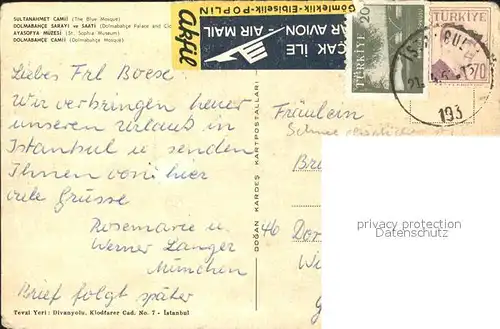 SULTANAHMET CAMİİ (The Blue Mosque)
DOLMABAHÇE SARAYI ve SAATİ (Dolmabahçe Palace and
AYASOFYA MÜZESİ (St. Sophia Museum)
DOLMABAHÇE CAMİİ (Dolmabahçe Mosque)
Gömleklik-Elbiselik-POPLİN
Akfil
UÇAK İLE
PAR AVION - AIR MAIL
TÜRKİYE 20
TÜRKİYE
70
193
Liebes Frl Boese
Wir verbringen heuer
unseren Urlaub in
Istanbul u senden
Ihnen von hier
viele Grüsse
Rosemarie u
Werner Langer
München
Brief folgt später
DOĞAN KARDEŞ KARTPOSTALLARI
Fräulein
46
privacy protection
Datenschutz
Tevzi Yeri: Divanyolu, Klodfarer Cad. No. 7 - İstanbul